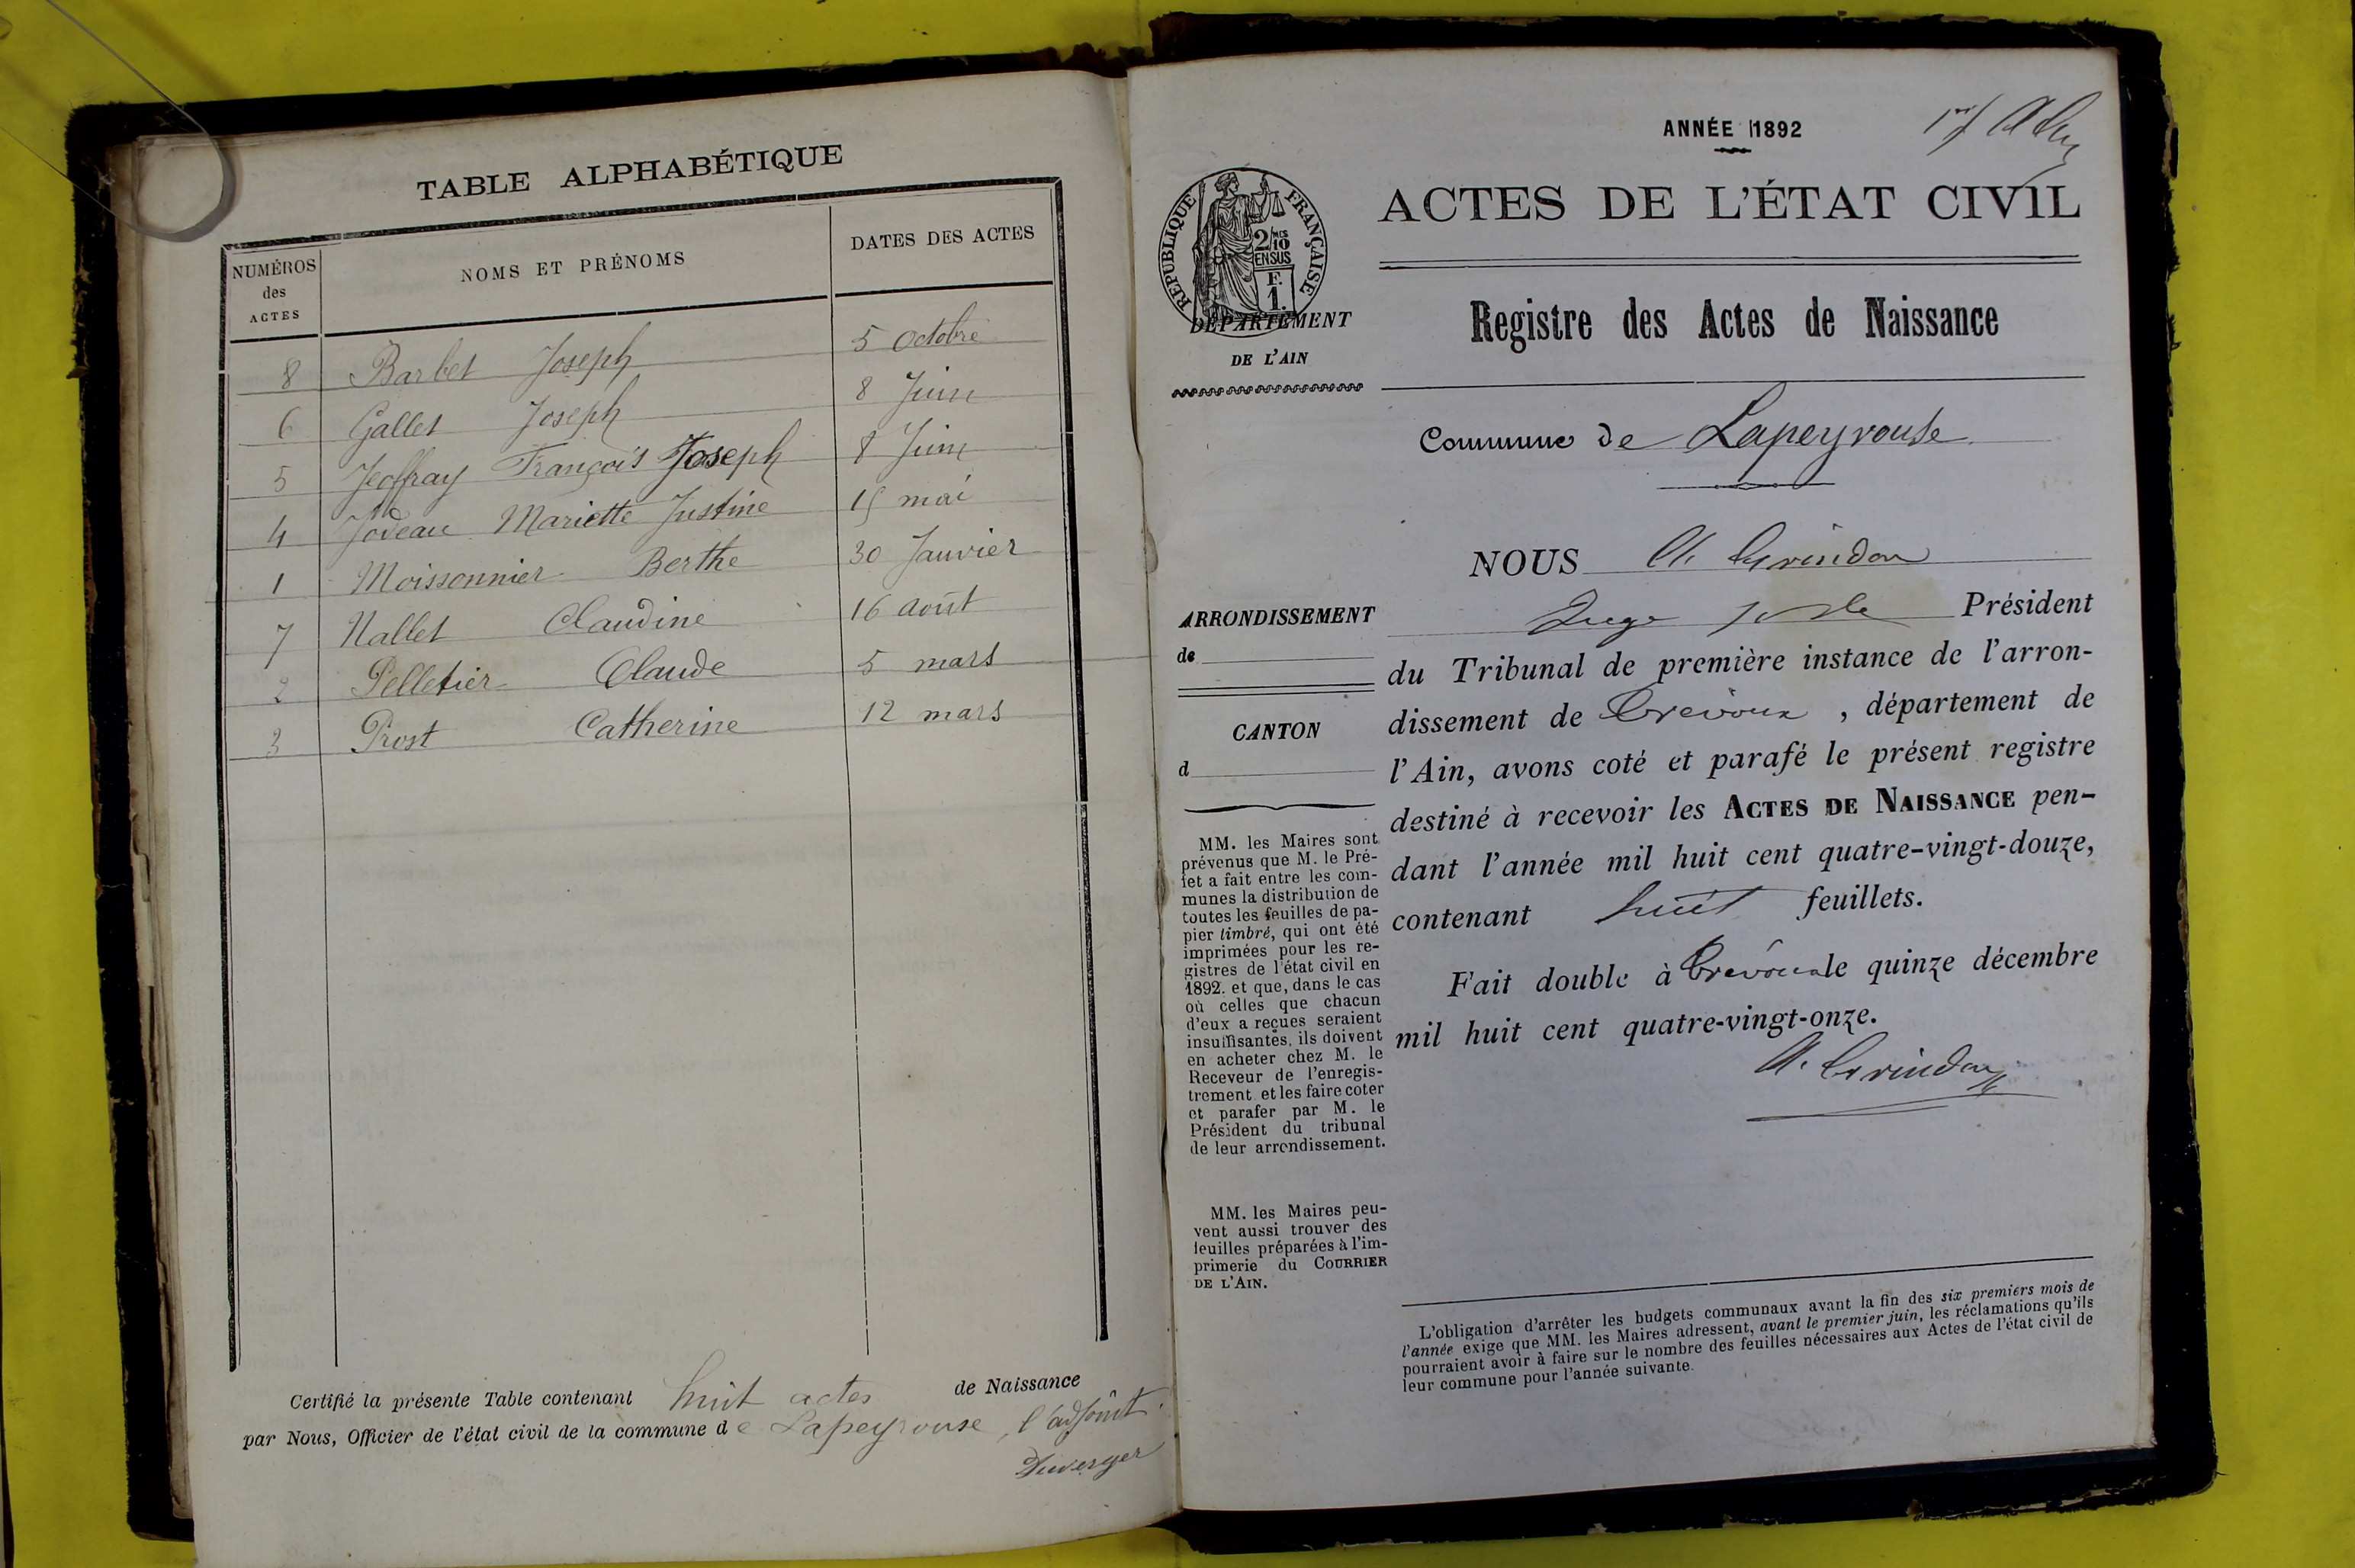 TABLE ALPHABÉTIQUE
NUMÉROS des ACTES NOMS ET PRÉNOMS DATES DES ACTES
8 Barbet Joseph 5 Octobre
6 Gallet Joseph 8 Juin
5 Jeoffray François Joseph 8 Juin
4 Jodeau Mariette Justine 15 mai
1 Moissonnier Berthe 30 Janvier
7 Nallet Claudine 16 août
2 Pelletier Claude 5 mars
3 Prost Catherine 12 mars
Certifié la présente Table contenant huit actes de Naissance
par Nous, Officier de l'état civil de la commune de Lapeyrouse, l'adjoint
Duverger
ANNÉE 1892
ACTES DE L'ÉTAT CIVIL
RÉPUBLIQUE FRANÇAISE
2/10 MES
EN SUS
F.
1.
DÉPARTEMENT
DE L'AIN
Registre des Actes de Naissance
Commune de Lapeyrouse
NOUS A. Grindon
Juge Président
du Tribunal de première instance de l'arron-
dissement de Trévoux, département de
l'Ain, avons coté et parafé le présent registre
destiné à recevoir les ACTES DE NAISSANCE pen-
dant l'année mil huit cent quatre-vingt-douze,
contenant huit feuillets.
Fait double à Trévoux le quinze décembre
mil huit cent quatre-vingt-onze.
A. Grindon
ARRONDISSEMENT
de
CANTON
d
MM. les Maires sont
prévenus que M. le Pré-
fet a fait entre les com-
munes la distribution de
toutes les feuilles de pa-
pier timbré, qui ont été
imprimées pour les re-
gistres de l'état civil en
1892. et que, dans le cas
où celles que chacun
d'eux a reçues seraient
insuffisantes, ils doivent
en acheter chez M. le
Receveur de l'enregis-
trement et les faire coter
et parafer par M. le
Président du tribunal
de leur arrondissement.
MM. les Maires peu-
vent aussi trouver des
feuilles préparées à l'im-
primerie du COURRIER
DE L'AIN.
L'obligation d'arrêter les budgets communaux avant la fin des six premiers mois de
l'année exige que MM. les Maires adressent, avant le premier juin, les réclamations qu'ils
pourraient avoir à faire sur le nombre des feuilles nécessaires aux Actes de l'état civil de
leur commune pour l'année suivante.